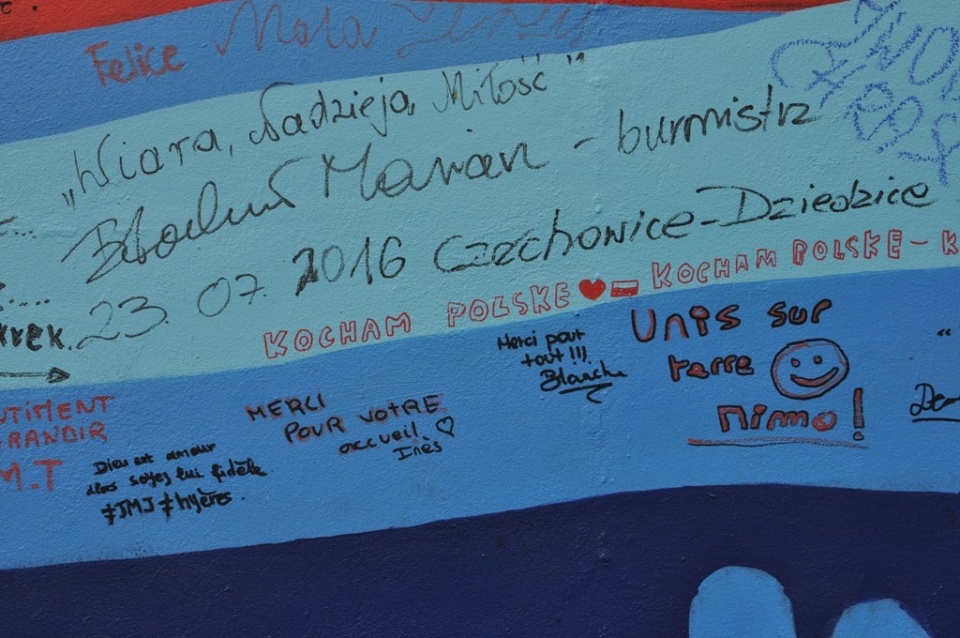 Felice
„Wiara, Nadzieja, Miłość"
Marian - burmistrz
23. 07. 2016 Czechowice-Dziedzice
KOCHAM POLSKE KOCHAM POLSKE - K
Merci pour
tout !!!
Blanche
UNIS sur
terre
nimo!
MERCI
POUR VOTRE
accueil
Inès
Dieu est amour
alors soyez lui fidèle
#JMJ #hyères.
TIMENT
RANDIR
M.T